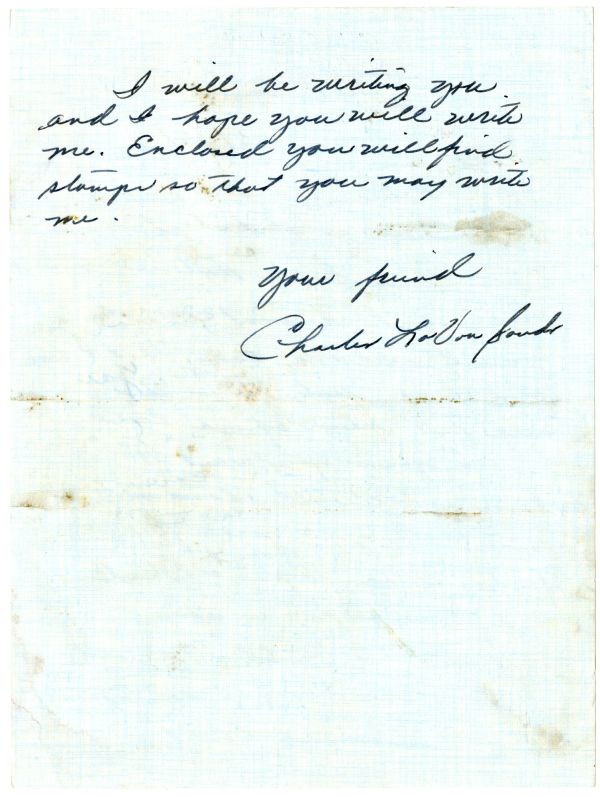 I will be writing you
and I hope you will write
me. Enclosed you will find
stamps so that you may write
me.
Your friend
Charles LaVon